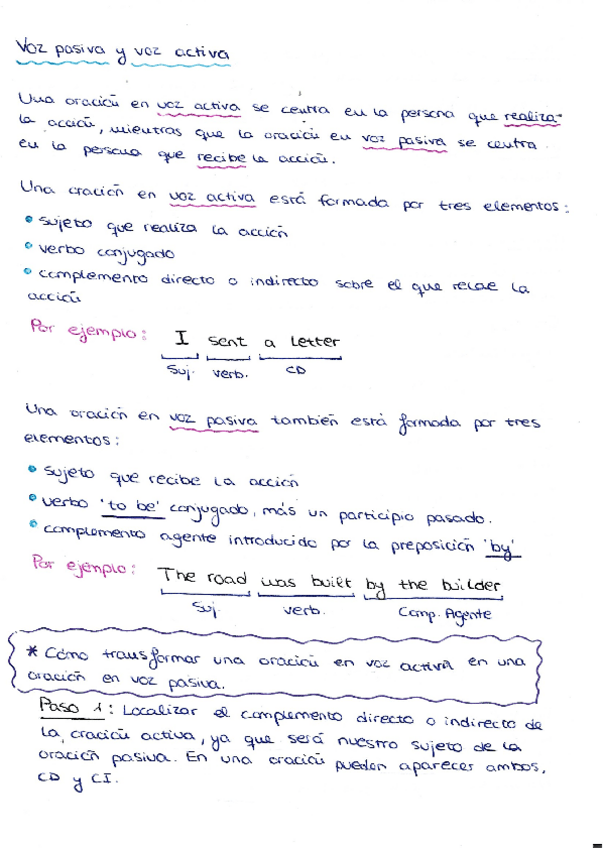 Voz pasiva y voz activa
Una oración en voz activa se centra en la persona que realiza
la acción, mientras que la oración en voz pasiva se centra
en la persona que recibe la acción.
Una oración en voz activa está formada por tres elementos:
• sujeto que realiza la acción
• verbo conjugado
• complemento directo o indirecto sobre el que recae la
acción
Por ejemplo: I sent a letter
Suj. verb. CD
Una oración en voz pasiva también está formada por tres
elementos:
• sujeto que recibe la acción
• verbo 'to be' conjugado, más un participio pasado.
• complemento agente introducido por la preposición 'by'
Por ejemplo: The road was built by the builder
Suj. verb. Comp. Agente
* Cómo transformar una oración en voz activa en una
oración en voz pasiva.
Paso 1: Localizar el complemento directo o indirecto de
la oración activa, ya que será nuestro sujeto de la
oración pasiva. En una oración pueden aparecer ambos,
CD y CI.